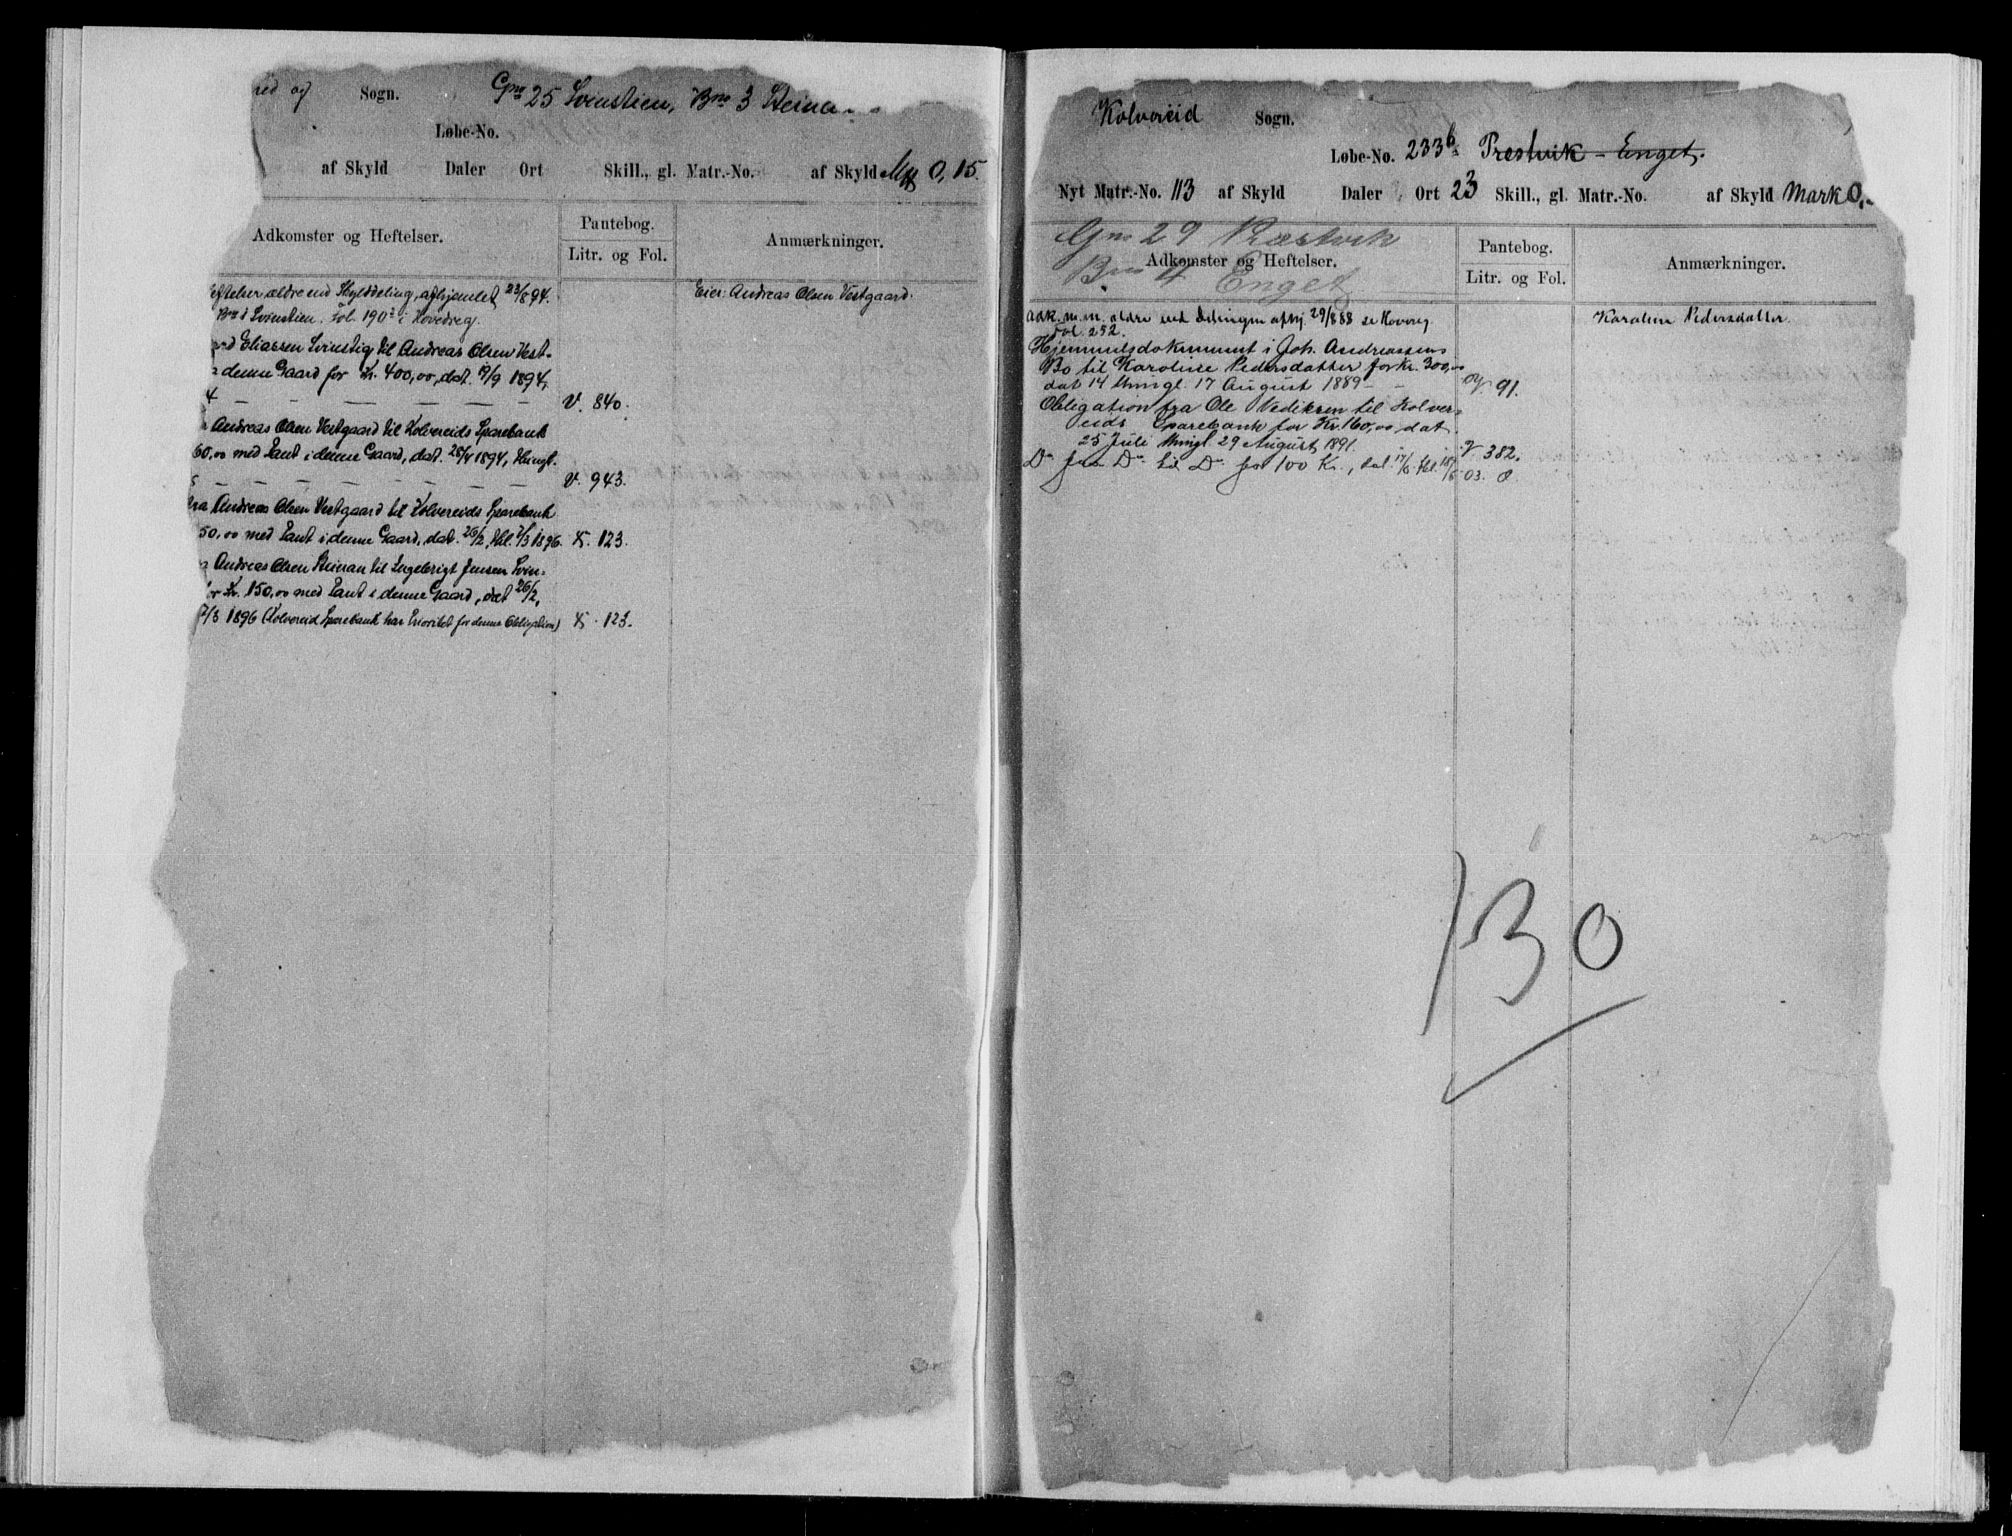 Sogn. Gno 25 Svinstien, Bno 3 Steina
Løbe-No.
af Skyld Daler Ort Skill., gl. Matr.-No. af Skyld Mk 0,15.
Adkomster og Heftelser. Pantebog. Litr. og Fol. Anmærkninger.
eftelser ældre end Skylddeling, afhjemlet 23/8 94. Eier: Andreas Olsen Vestgaard.
Bno 1 Svinstien. fol. 190 i Hovedreg.
Eliassen Svinstig til Andreas Olsen Vest-
denne Gaard for Kr. 400,00, dat. 19/9 1894,
4 — — — — — — V. 840.
Andreas Olsen Vestgaard til Kolvereids Sparebank
60,00 med Pant i denne Gaard, dat. 28/4 1894, thingl.
— — — — — — V. 943.
ra Andreas Olsen Vestgaard til Kolvereids Sparebank
50,00 med Pant i denne Gaard, dat. 26/2, thl. 2/3 1896. X. 123.
a Andreas Olsen Steinan til Ingebrigt Jensen Svin-
or Kr. 150,00 med Pant i denne Gaard, dat 26/2,
2/3 1896 (Kolvereid Sparebank har Prioritet for denne Obligation) X. 123.
Kolvereid Sogn.
Løbe-No. 233b Prestvik - Enget.
Nyt Matr.-No. 113 af Skyld Daler Ort 23 Skill., gl. Matr.-No. af Skyld Mark 0,
Gno 29 Præstvik
Bno 4 Enget
Adkomster og Heftelser. Pantebog. Litr. og Fol. Anmærkninger.
Adk. m. m. ældre end Delingen afhj. 29/8 88 se Hovreg Karoline Pedersdatter.
fol. 252.
Hjemmelsdokument i Joh. Andreassens
Bo til Karoline Pedersdatter for Kr. 300,00
dat 14 thingl. 17 August 1889 — — 91.
Obligation fra Ole Vediksen til Kolver-
eids Sparebank for Kr. 160,00, dat.
25 Juli thingl. 29 August 1891. V 382.
Do fra Do til Do for 100 Kr., dat. 17/6 thl. 18/6 03.
130